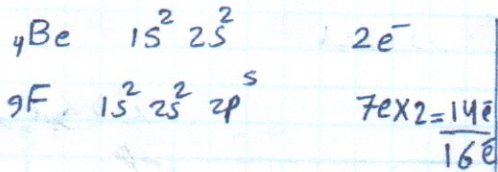 ₄Be 1s² 2s² 2e⁻
₉F 1s² 2s² 2p⁵ 7e×2=14ē
16ē